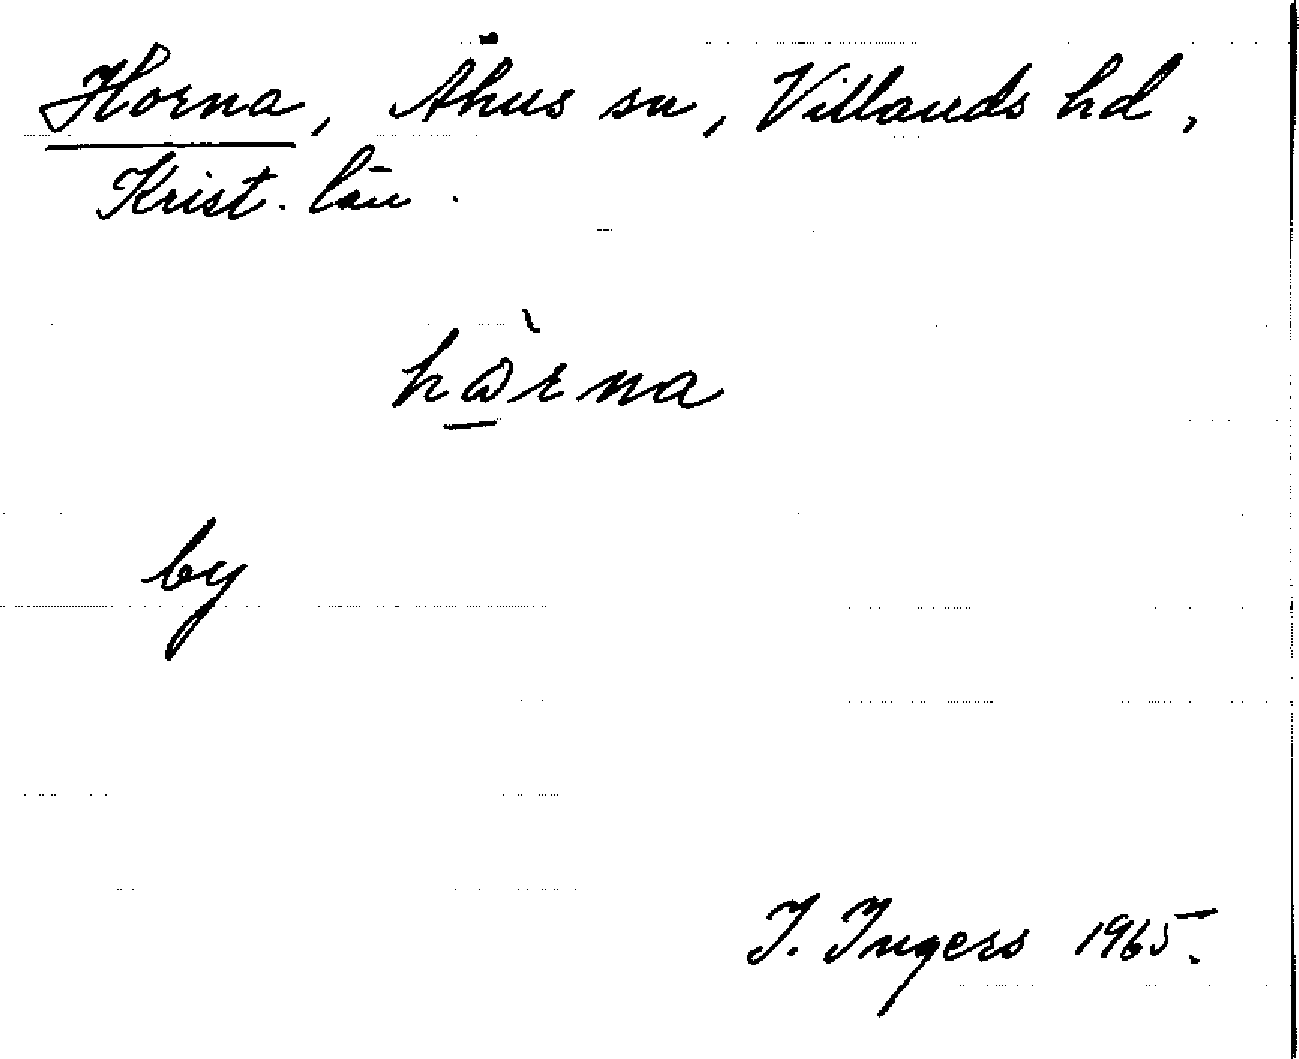 Horna, Åhus sn, Villands hd,
Krist. län.
hòrna
by
I. Ingers 1965.